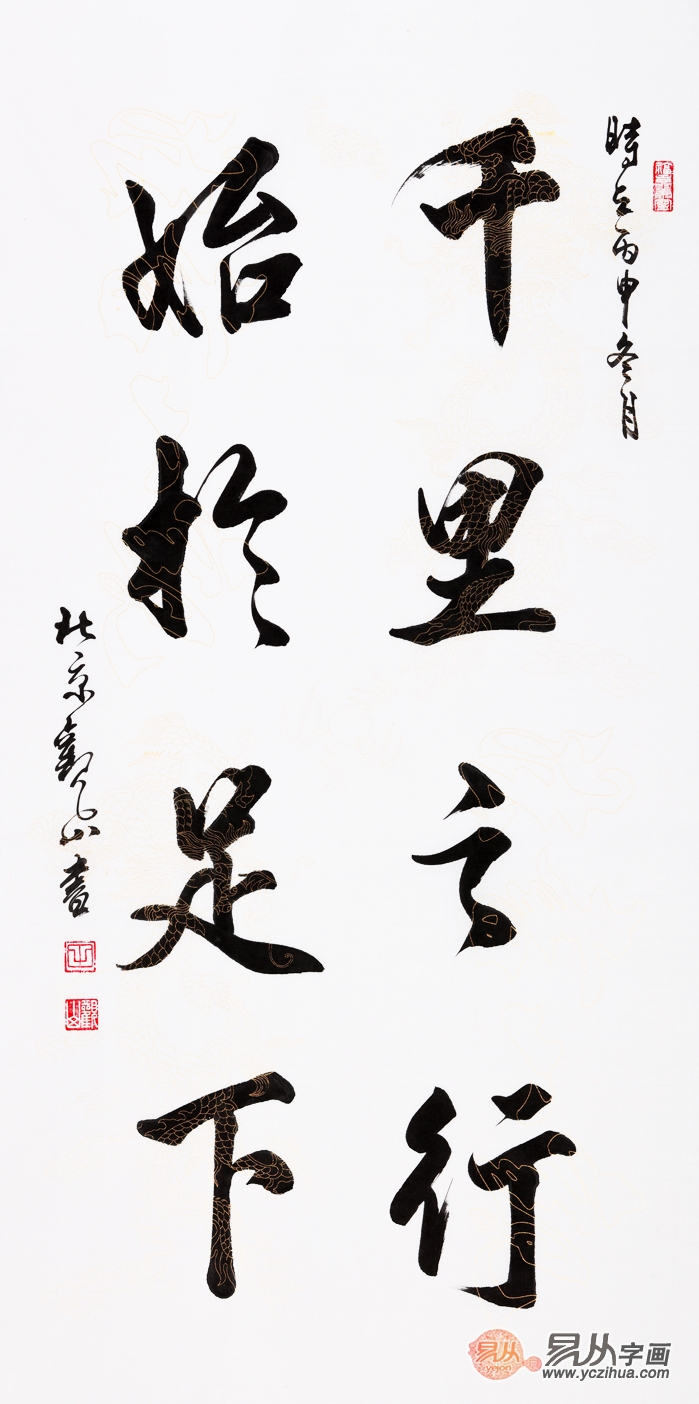 時在丙申冬月
千里之行
始於足下
北京觀山書
觀山
易从字画
yicon
www.yczihua.com